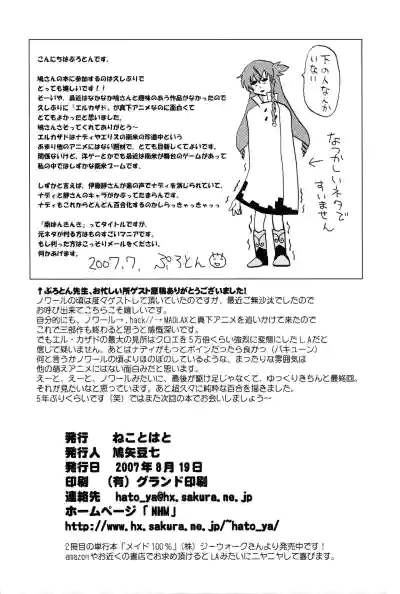 こんにちはぷろとんです。
鳩さんの本に参加するのは久しぶりで
とっても嬉しいです！！
そーいや、最近はなかなか鳩さんと趣味のあう作品がなかったので
久しぶりに「エルカザド」が真下アニメなのに面白くて
とてもよかったと思いました。
鳩さんさそってくれてありがとう～
エルカザドはナディやエリスの南米の珍道中という
あまり他のアニメにはない題材で、とても目新しくてよいです。
関係ないけど、洋ゲーとかでも最近は南米が舞台のゲームがあって
私の中ではしずかな南米ブームです。
しずかと言えば、伊藤静さんが素の声でナディを演じられていて、
ナディと静さんのキャラがかぶってたまらんです。
ナディもこれからどんどん百合化するのかしらっきゃっきゃっっ
「南はんきんき」ってタイトルですが、
元ネタが判る方はものすごいマニアです。
もし判った方はこっそりメールをください。
何かあげます。
2007.7. ぷろとん
下の人なんかいない
なつかしいネタですいません
↑ぷろとん先生、お忙しい所ゲスト原稿ありがとうございました！
ノワールの頃は度々ゲストして頂いていたのですが、最近ご無沙汰でしたので
お呼び出来てこちらこそ嬉しいです。
自分的にも、ノワール→.hack//→MADLAXと真下アニメを追いかけて来たので
これで三部作も終わると思うと感慨深いです。
でもエル・カザドの最大の見所はクロエを５万倍くらい強烈に変態にしたＬＡだと
信じて疑いません。あとはナディがもっとボインだったら良かっ（バキューン）
何と言うかノワールの頃よりほのぼのしているような、まったりな雰囲気は
他の萌えアニメにはない面白みだと思います。
えーと、えーと、ノワールみたいに、最後が駆け足じゃなくて、ゆっくりきちんと最終回。
それが見たいなと思っています。あと超久々に純粋な百合を描きました。
５年ぶりくらいです（笑）ではまた次回の本でお会いしましょう～
発行 ねことはと
発行人 鳩矢豆七
発行日 2007年8月19日
印刷 （有）グランド印刷
連絡先 hato_ya@hx.sakura.ne.jp
ホームページ「NHM」
http://www.hx.sakura.ne.jp/~hato_ya/
２冊目の単行本「メイド100％」（株）ジーウォークさんより発売中です！
amazonやお近くの書店でお求め頂けるとLAみたいにニヤニヤして喜びます。